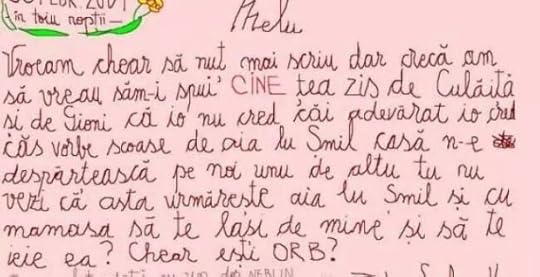 în toiu nopții —
Melu
Vroeam chear să nuț mai scriu dar crecă am
să vreau săm-i spui CINE țea zis de Culăiță
și de Gioni că io nu cred căi adevărat io cred
căs vorbe scoase de aia lu Smil casă n-e
despărtească pe noi unu de altu tu nu
vezi că asta urmărește aia lu Smil și cu
mamasa să te lași de mine și să te
ieie ea? Chear ești ORB?